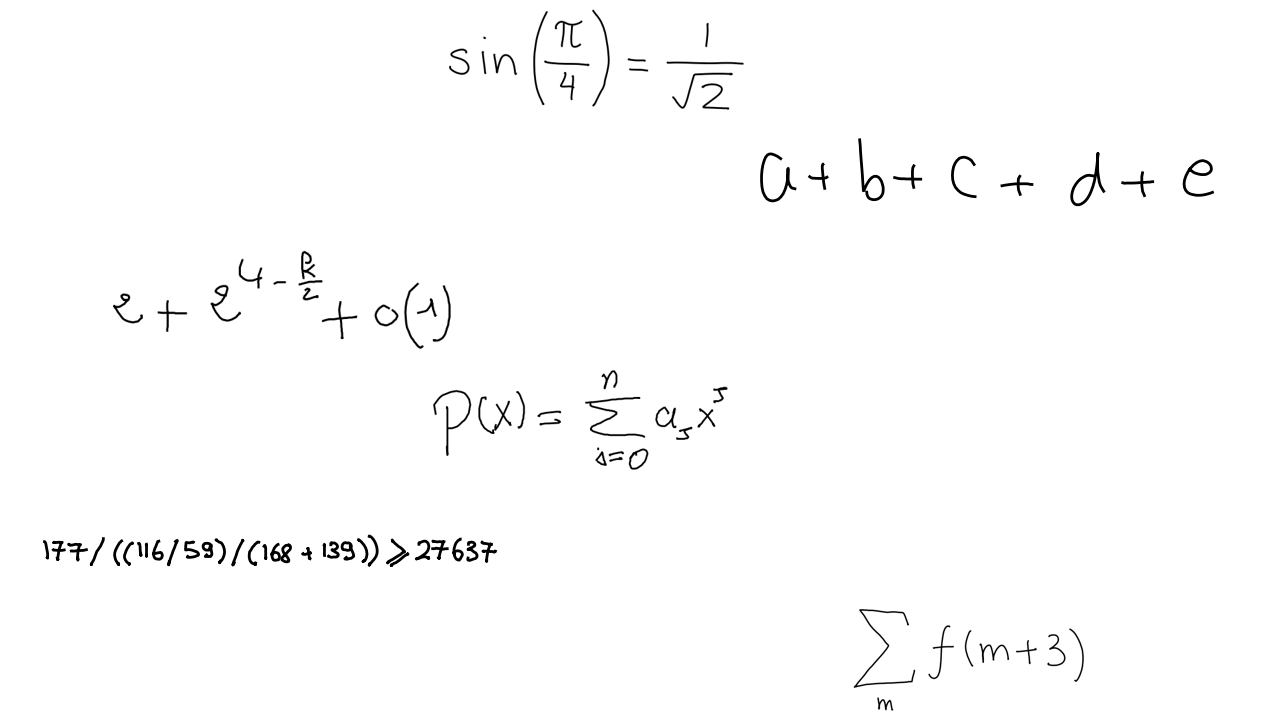 sin(π/4) = 1/√2
a + b + c + d + e
2 + 2^{4 - k/2} + o(1)
P(x) = ∑_{s=0}^{n} a_s x^s
177/((116/59)/(168+139)) ≥ 27637
∑_{m} f(m+3)